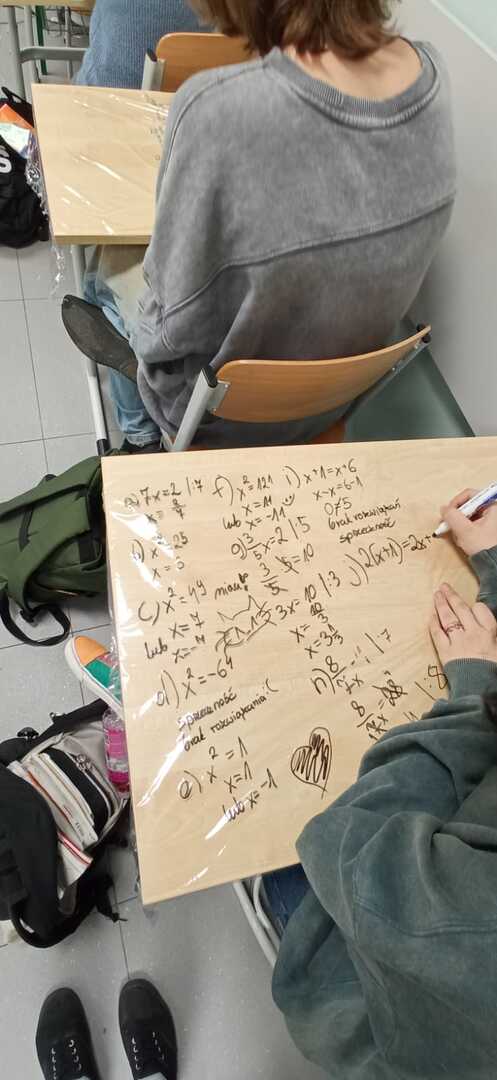 a) 7x=2 |:7
x=2/7
b) x²=25
x=5
c) x²=49
x=7
lub x=-7
d) x²=-64
sprzeczność
brak rozwiązania :(
e) x²=1
x=1
lub x=-1
f) x²=121
x=11
lub x=-11
g) 3/5x=2 |:5
=10
3x=10 |:3
x=10/3
x=3 1/3
miau
h) 8
|:7
8
|:8
i) x+1=x+6
x-x=6-1
0≠5
brak rozwiązań
sprzeczność
j) 2(x+1)=2x+